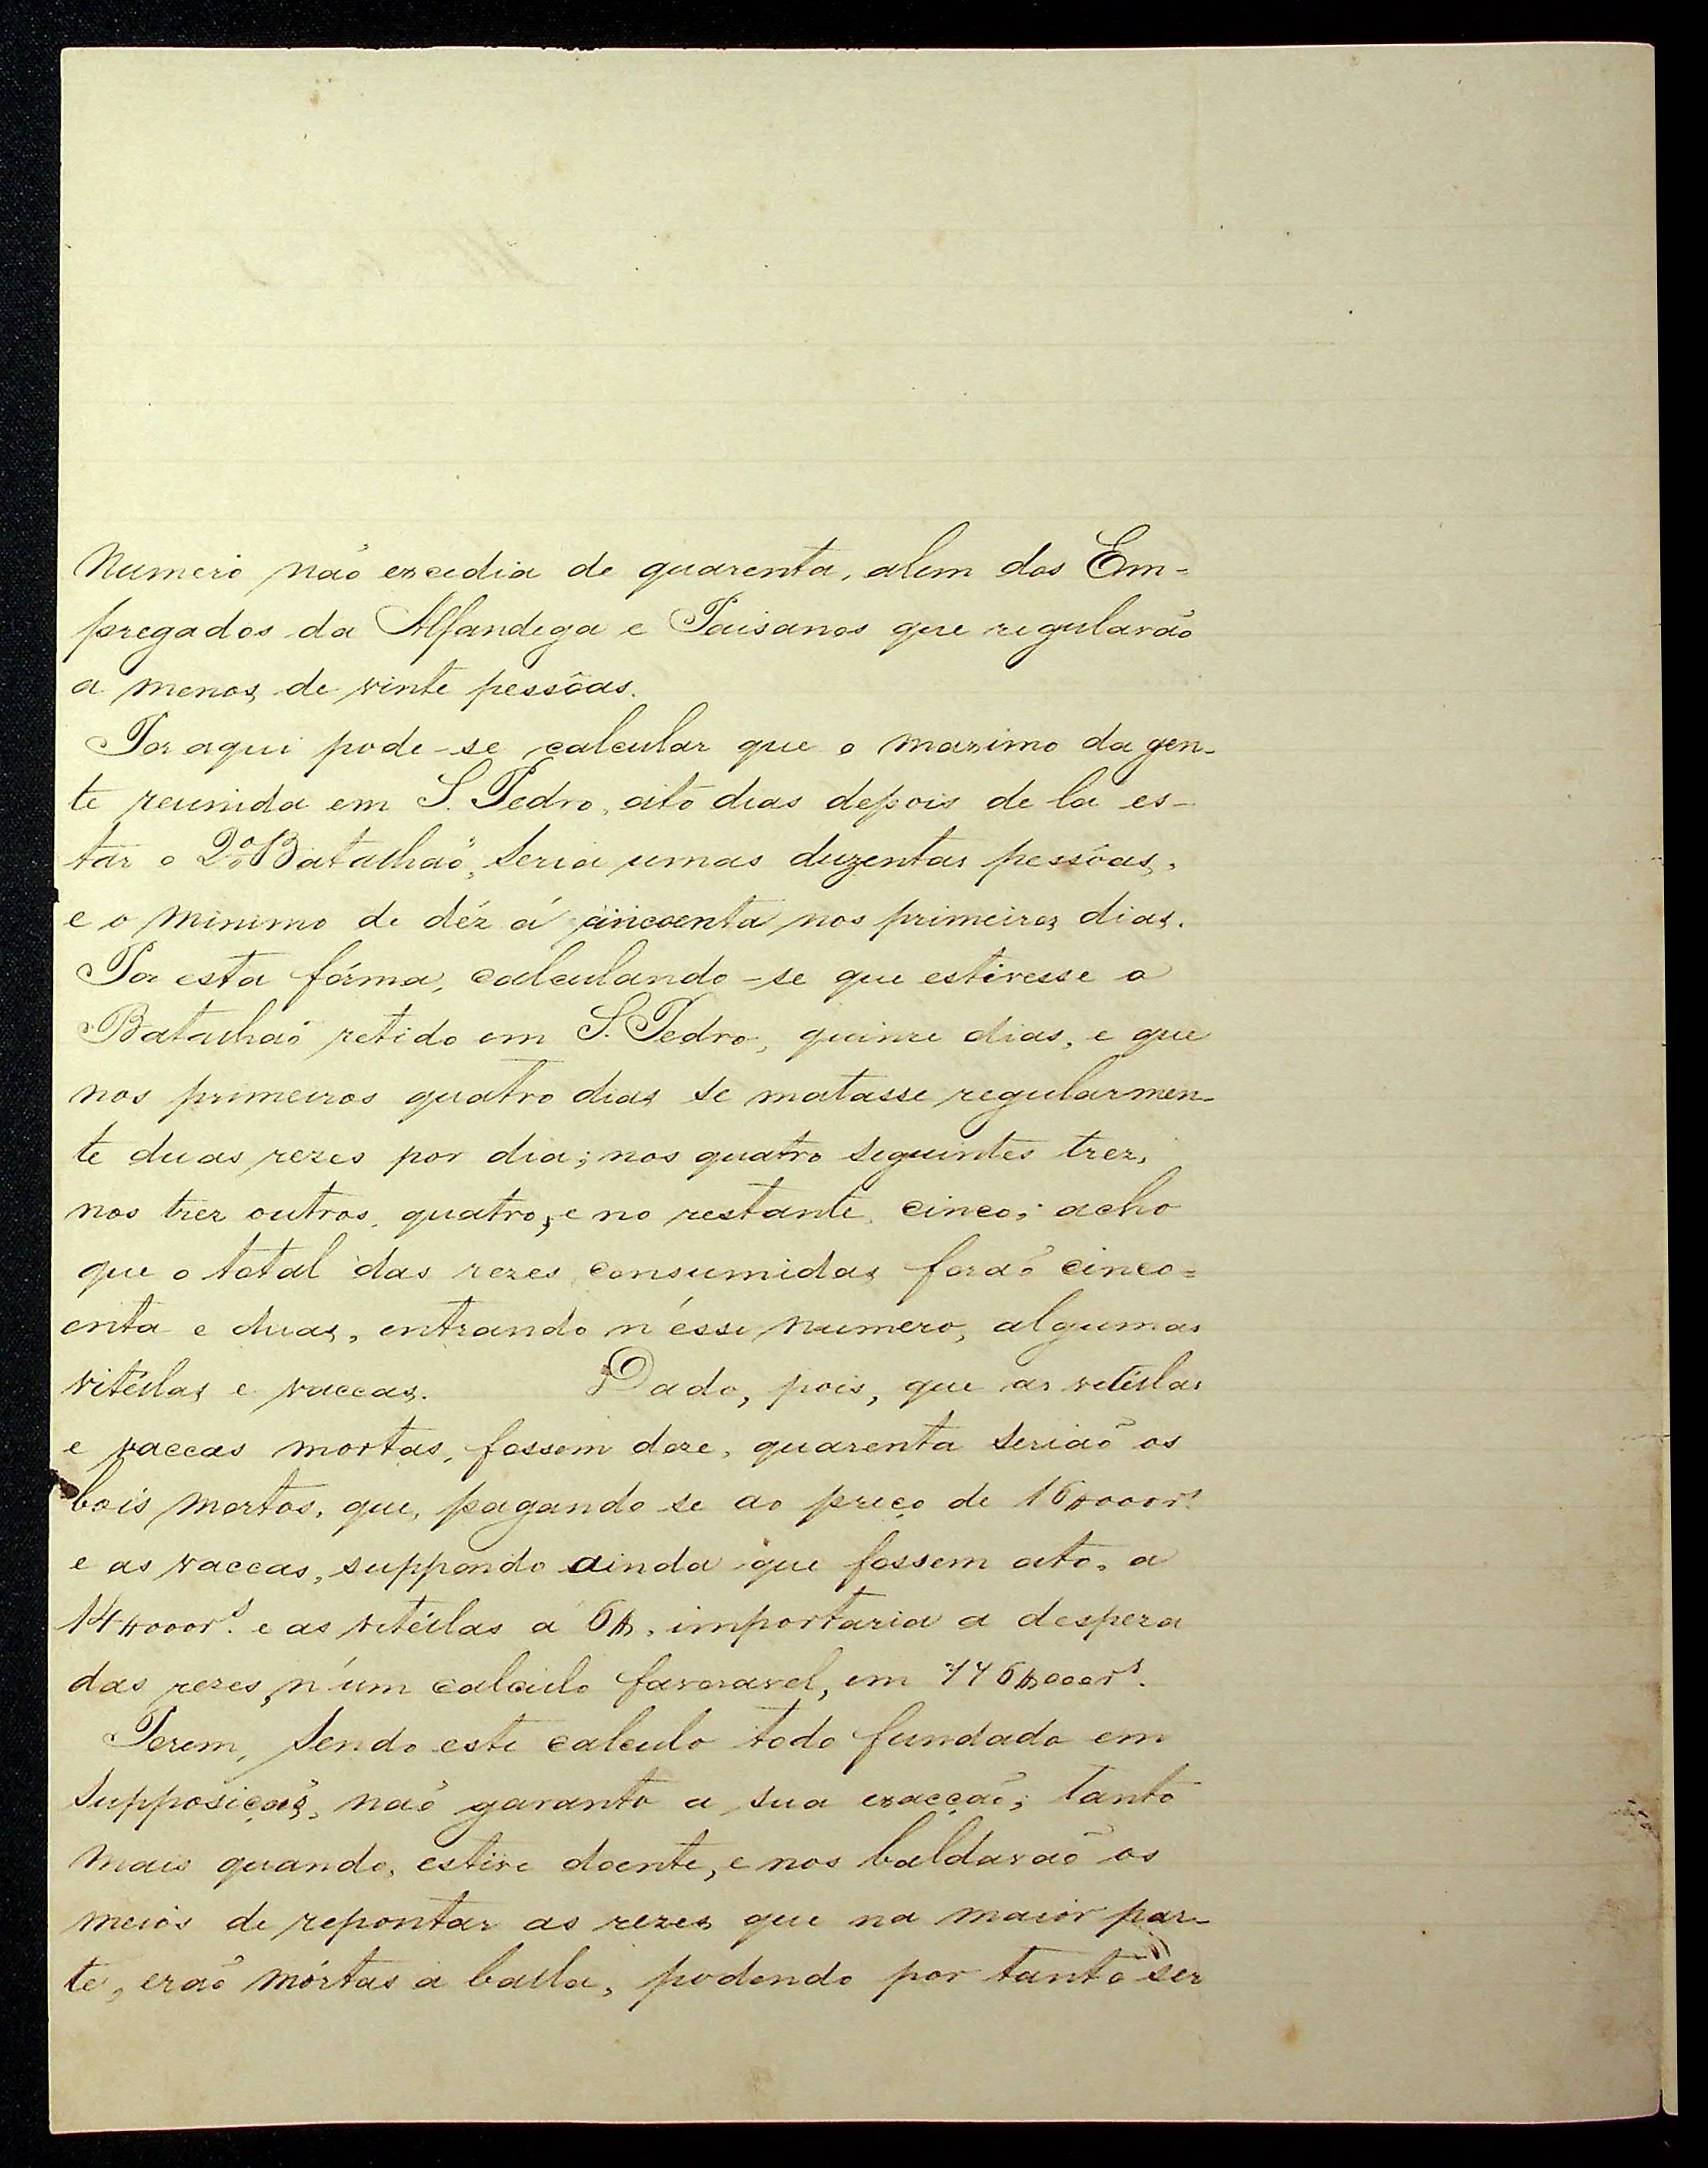 Numero não excedia de quarenta, alem dos Em=
pregados da Alfandega e Paisanos que regularão
a menos de vinte pessôas.
Por aqui pode-se calcular que o maximo da gen-
te reunida em S. Pedro, oito dias depois de la es-
tar o 2º Batalhão, seria umas duzentas pessôas,
e o minimo de déz á cincoenta nos primeiros dias.
Por esta fórma, calculando-se que estivesse o
Batalhão retido em S. Pedro, quinze dias, e que
nos primeiros quatro dias se matasse regularmen-
te duas rezes por dia; nos quatro seguintes trez,
nos trez outros, quatro, e no restante, cinco; acho
que o total das rezes consumidas forão cinco=
enta e duas, entrando n'ésse numero, algumas
vitéilas e vaccas. Dado, pois, que as vitéilas
e vaccas mortas, fossem doze, quarenta serião os
bois mortos, que, pagando se ao preço de 16$000rs
e as vaccas, suppondo ainda que fossem oito, a
14$000rs. e as vitéilas a 6$, importaria a despeza
das rezes, n'um calculo favoravel, em 776$000rs.
Porem, sendo este calculo todo fundado em
supposição, não garanto a sua exacção; tanto
mais quando, estive doente, e nos baldavão os
meios de repontar as rezes que na maior par-
te, erão mórtas a balla, podendo por tanto ser